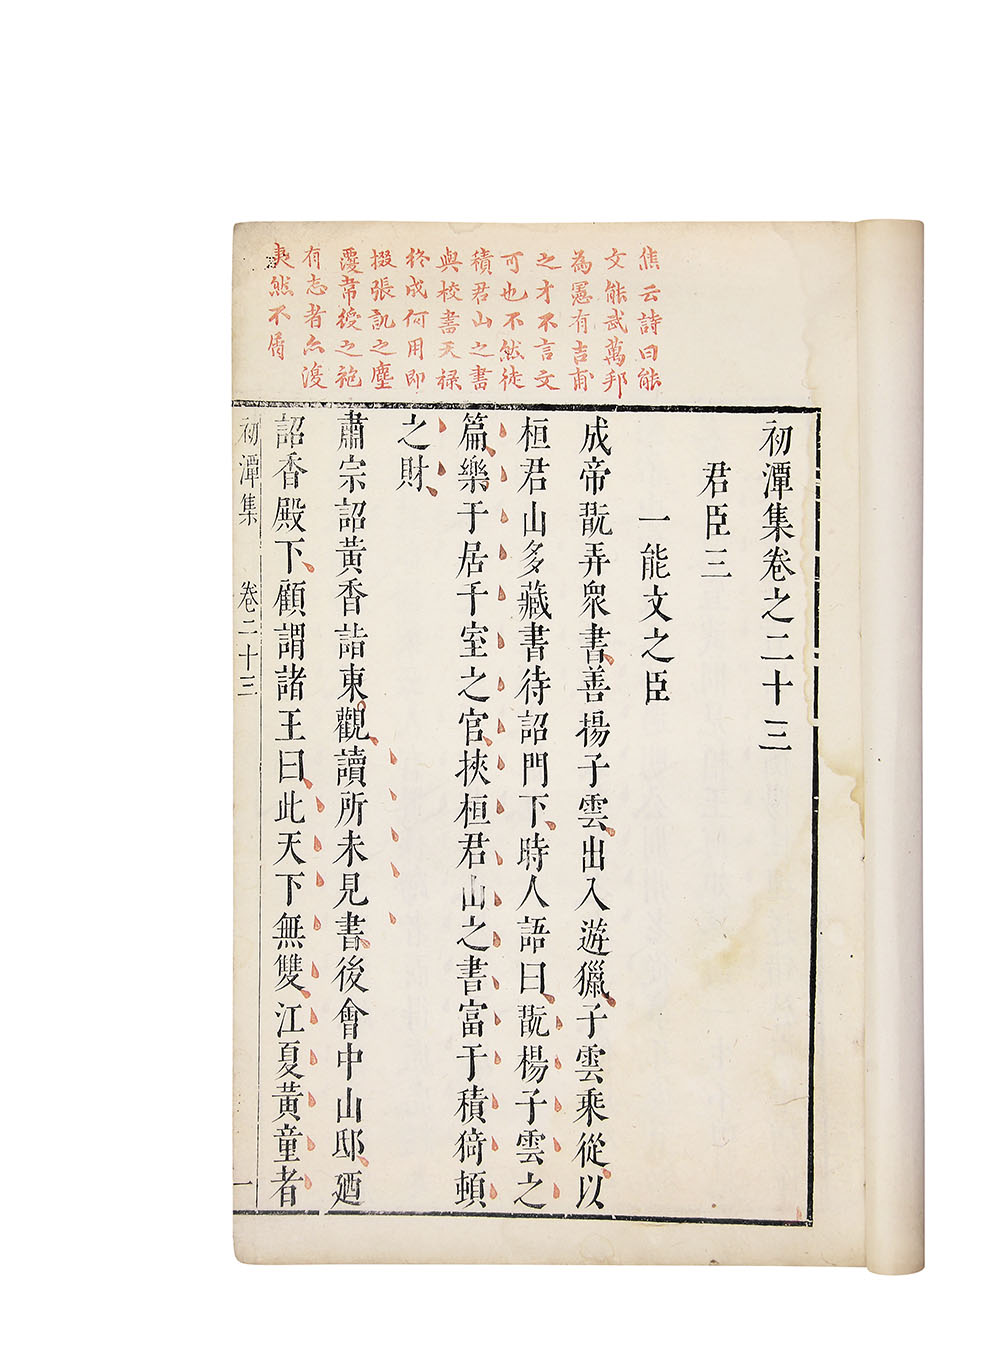 焦云詩曰能
文能武萬邦
為憲有吉甫
之才不言文
可也不然徒
積君山之書
與校書天祿
終成何用即
掇張訊之塵
覆韋綬之袍
有志者亦漠
夷然不屑
初潭集卷之二十三
君臣三
一能文之臣
成帝翫弄衆書善揚子雲出入遊獵子雲乘從以
桓君山多藏書待詔門下時人語曰翫楊子雲之
篇樂于居千室之官挾桓君山之書富于積猗頓
之財
肅宗詔黃香詣東觀讀所未見書後會中山邸廼
詔香殿下顧謂諸王曰此天下無雙江夏黃童者
初潭集 卷二十三 一